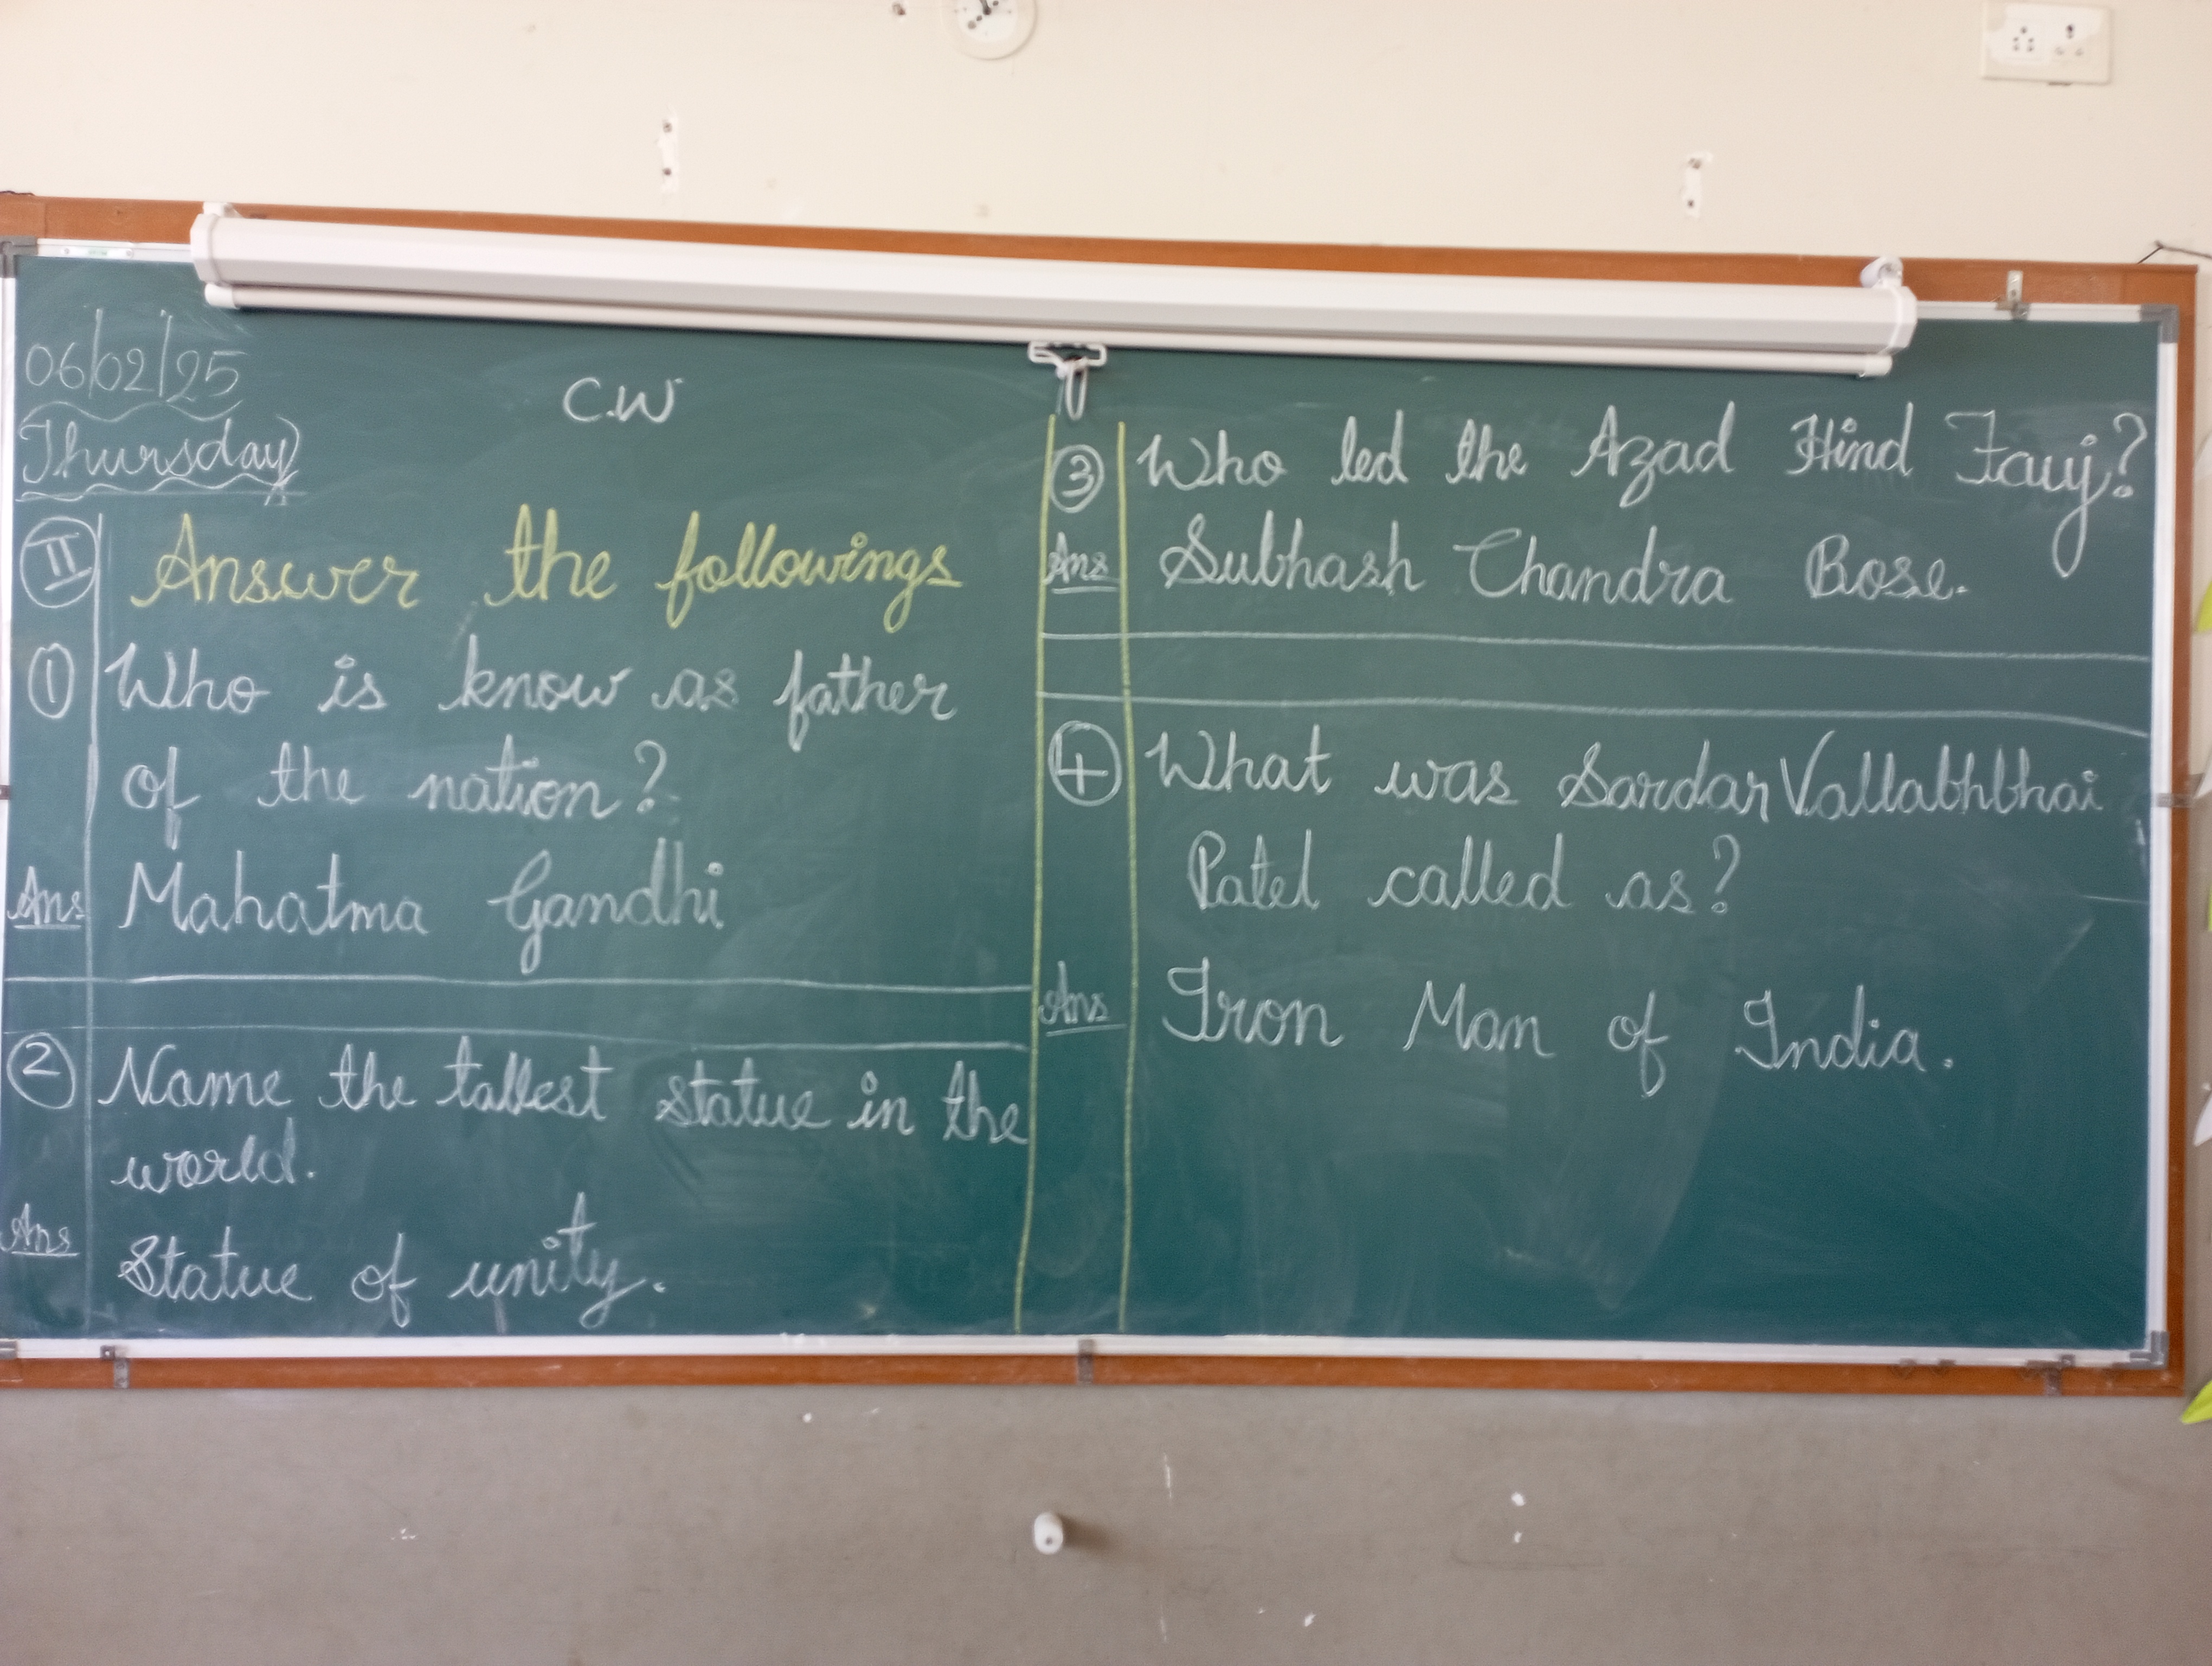 06/02/25
Thursday
C.W
II Answer the followings
1 Who is know as father
of the nation?
Ans Mahatma Gandhi
2 Name the tallest statue in the
world.
Ans
Statue of unity.
3 Who led the Azad Hind Fauj?
Ans Subhash Chandra Bose.
4 What was Sardar Vallabhbhai
Patel called as?
Ans Iron Man of India.